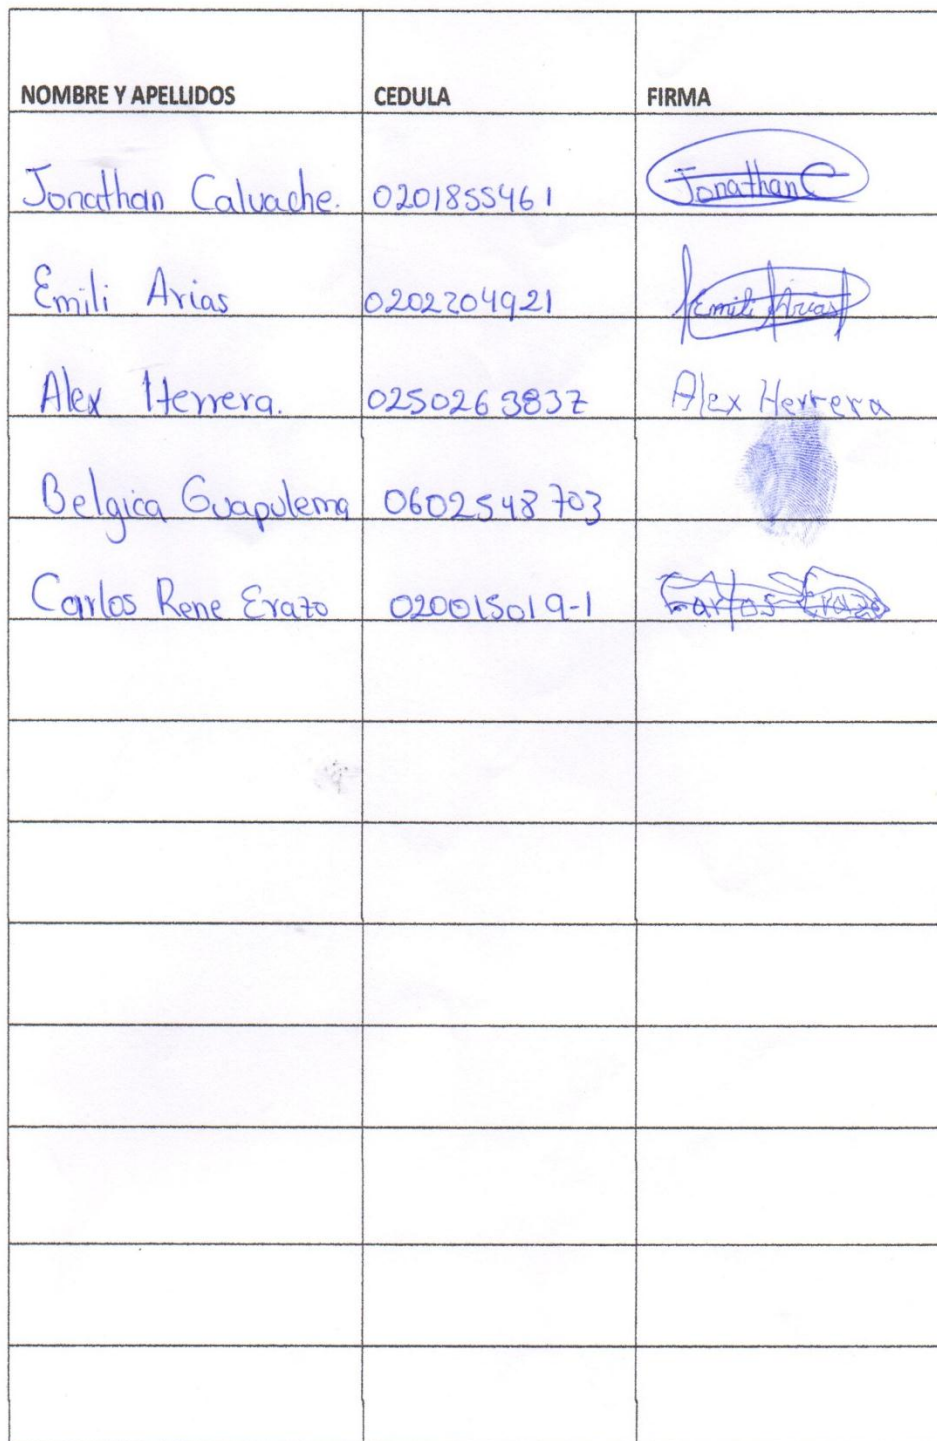 NOMBRE Y APELLIDOS CEDULA FIRMA
Jonathan Calvache. 0201855461 Jonathan C
Emili Arias 0202204921 Emili Arias
Alex Herrera. 0250263837 Alex Herrera
Belgica Guapulema 0602548703
Carlos Rene Erazo 020015019-1 Carlos Erazo